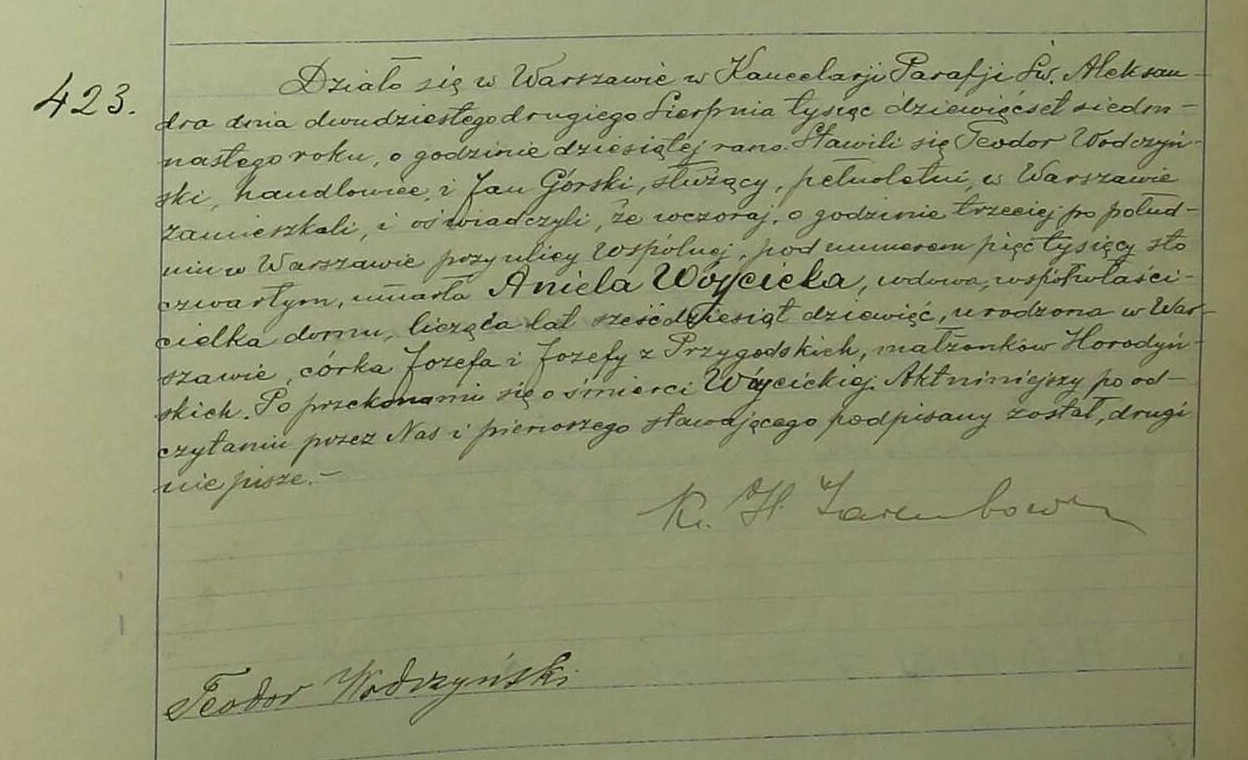 423.
Działo się w Warszawie w Kancelarji Parafji Św. Aleksan-
dra dnia dwudziestego drugiego Sierpnia tysiąc dziewięćset siedm-
nastego roku, o godzinie dziesiątej rano. Stawili się Teodor Wodczyń-
ski, handlowiec, i Jan Górski, służący, pełnoletni, w Warszawie
zamieszkali, i oświadczyli, że wczoraj, o godzinie trzeciej po połud-
niu w Warszawie przy ulicy Wspólnej, pod numerem pięć tysięcy sto
czwartym, umarła Aniela Wójcicka, wdowa, współwłaści-
cielka domu, licząca lat sześćdziesiąt dziewięć, urodzona w War-
szawie, córka Józefa i Józefy z Przygodskich, małżonków Horodyń-
skich. Po przekonaniu się o śmierci Wójcickiej. Akt niniejszy po od-
czytaniu przez Nas i pierwszego stawającego podpisany został, drugi
nie pisze.-
Teodor Wodczyński